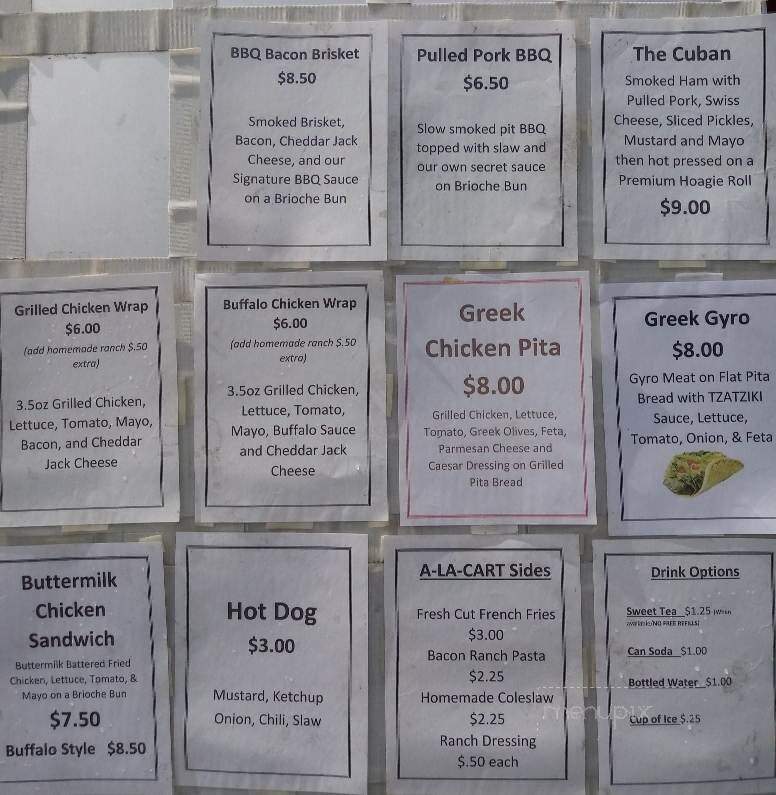 BBQ Bacon Brisket
$8.50
Smoked Brisket,
Bacon, Cheddar Jack
Cheese, and our
Signature BBQ Sauce
on a Brioche Bun
Pulled Pork BBQ
$6.50
Slow smoked pit BBQ
topped with slaw and
our own secret sauce
on Brioche Bun
The Cuban
Smoked Ham with
Pulled Pork, Swiss
Cheese, Sliced Pickles,
Mustard and Mayo
then hot pressed on a
Premium Hoagie Roll
$9.00
Grilled Chicken Wrap
$6.00
(add homemade ranch $.50
extra)
3.5oz Grilled Chicken,
Lettuce, Tomato, Mayo,
Bacon, and Cheddar
Jack Cheese
Buffalo Chicken Wrap
$6.00
(add homemade ranch $.50
extra)
3.5oz Grilled Chicken,
Lettuce, Tomato,
Mayo, Buffalo Sauce
and Cheddar Jack
Cheese
Greek
Chicken Pita
$8.00
Grilled Chicken, Lettuce,
Tomato, Greek Olives, Feta,
Parmesan Cheese and
Caesar Dressing on Grilled
Pita Bread
Greek Gyro
$8.00
Gyro Meat on Flat Pita
Bread with TZATZIKI
Sauce, Lettuce,
Tomato, Onion, & Feta
Buttermilk
Chicken
Sandwich
Buttermilk Battered Fried
Chicken, Lettuce, Tomato, &
Mayo on a Brioche Bun
$7.50
Buffalo Style $8.50
Hot Dog
$3.00
Mustard, Ketchup
Onion, Chili, Slaw
A-LA-CART Sides
Fresh Cut French Fries
$3.00
Bacon Ranch Pasta
$2.25
Homemade Coleslaw
$2.25
Ranch Dressing
$.50 each
Drink Options
Sweet Tea $1.25 (When
available/NO FREE REFILLS)
Can Soda $1.00
Bottled Water $1.00
Cup of Ice $.25
menupix